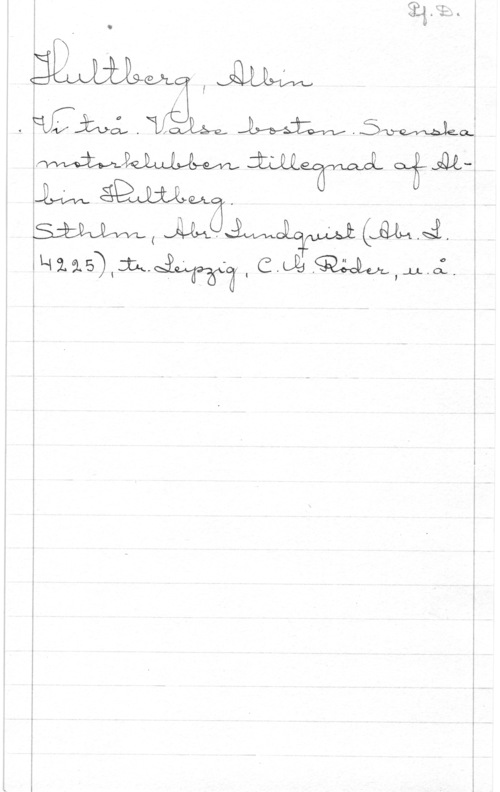 Pf. D.
Hultberg, Albin
Vi två. Valse boston. Svenska
motorklubben tillegnad af Al-
bin Hultberg.
Sthlm, Abr. Lundquist (Abr. L.
4225), tr. Leipzig, C. G. Röder, u. å.